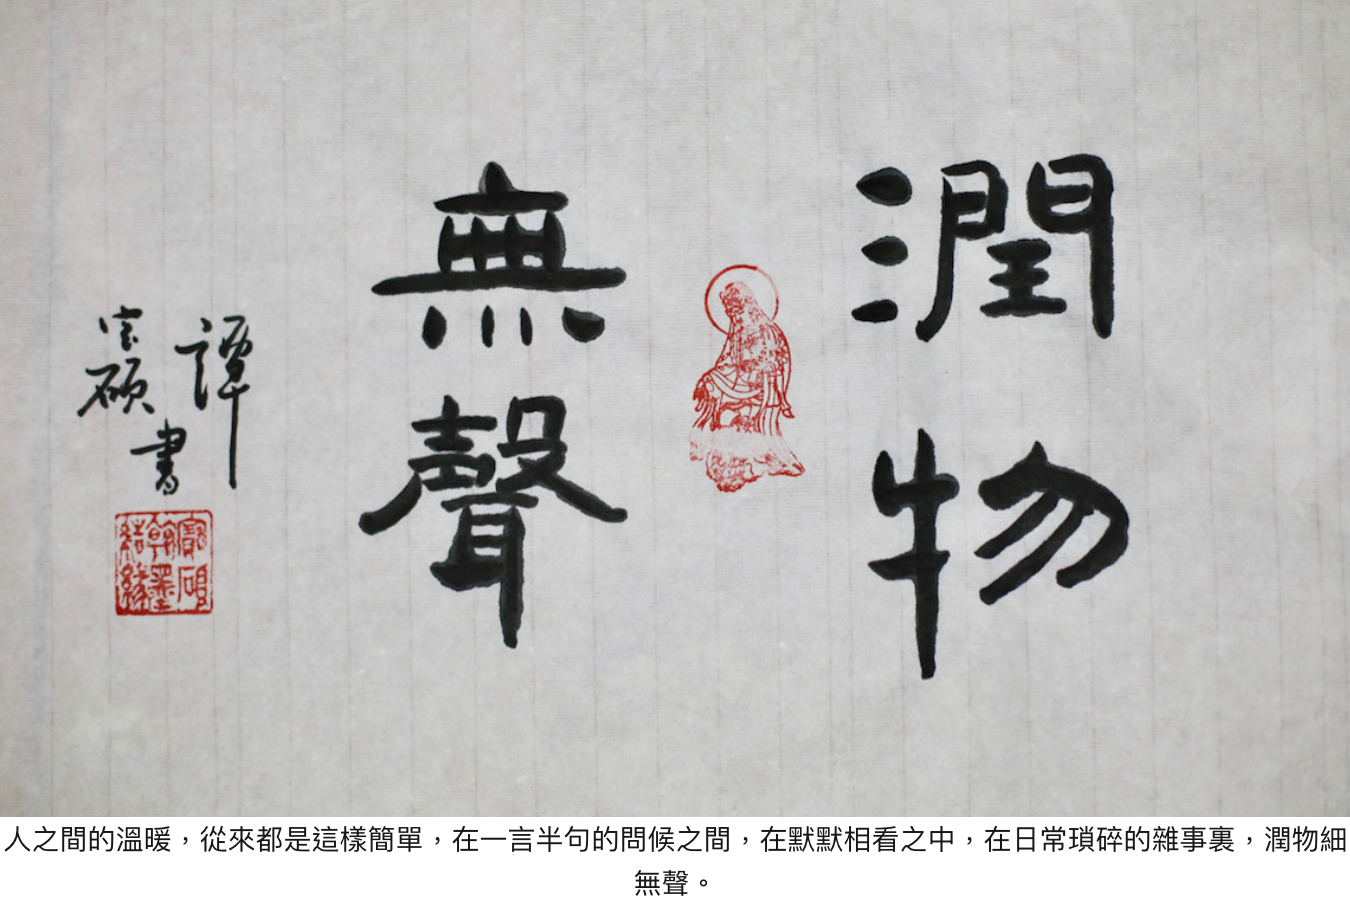 潤物
無聲
譚
宝碩
書
寶碩
翰墨
結緣
人之間的溫暖，從來都是這樣簡單，在一言半句的問候之間，在默默相看之中，在日常瑣碎的雜事裏，潤物細
無聲。